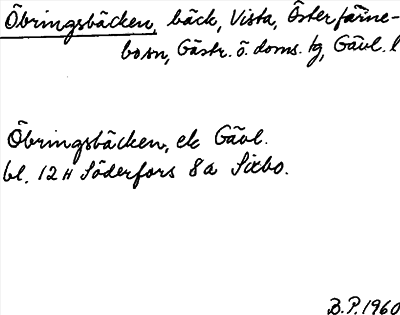 Öbringsbäcken, bäck, Vista, Österfärne-
bosn, Gästr. ö. doms. tg, Gävl. l
Öbringsbäcken, ek Gävl.
bl. 12 H Söderfors 8a Sixbo.
B.P. 1960